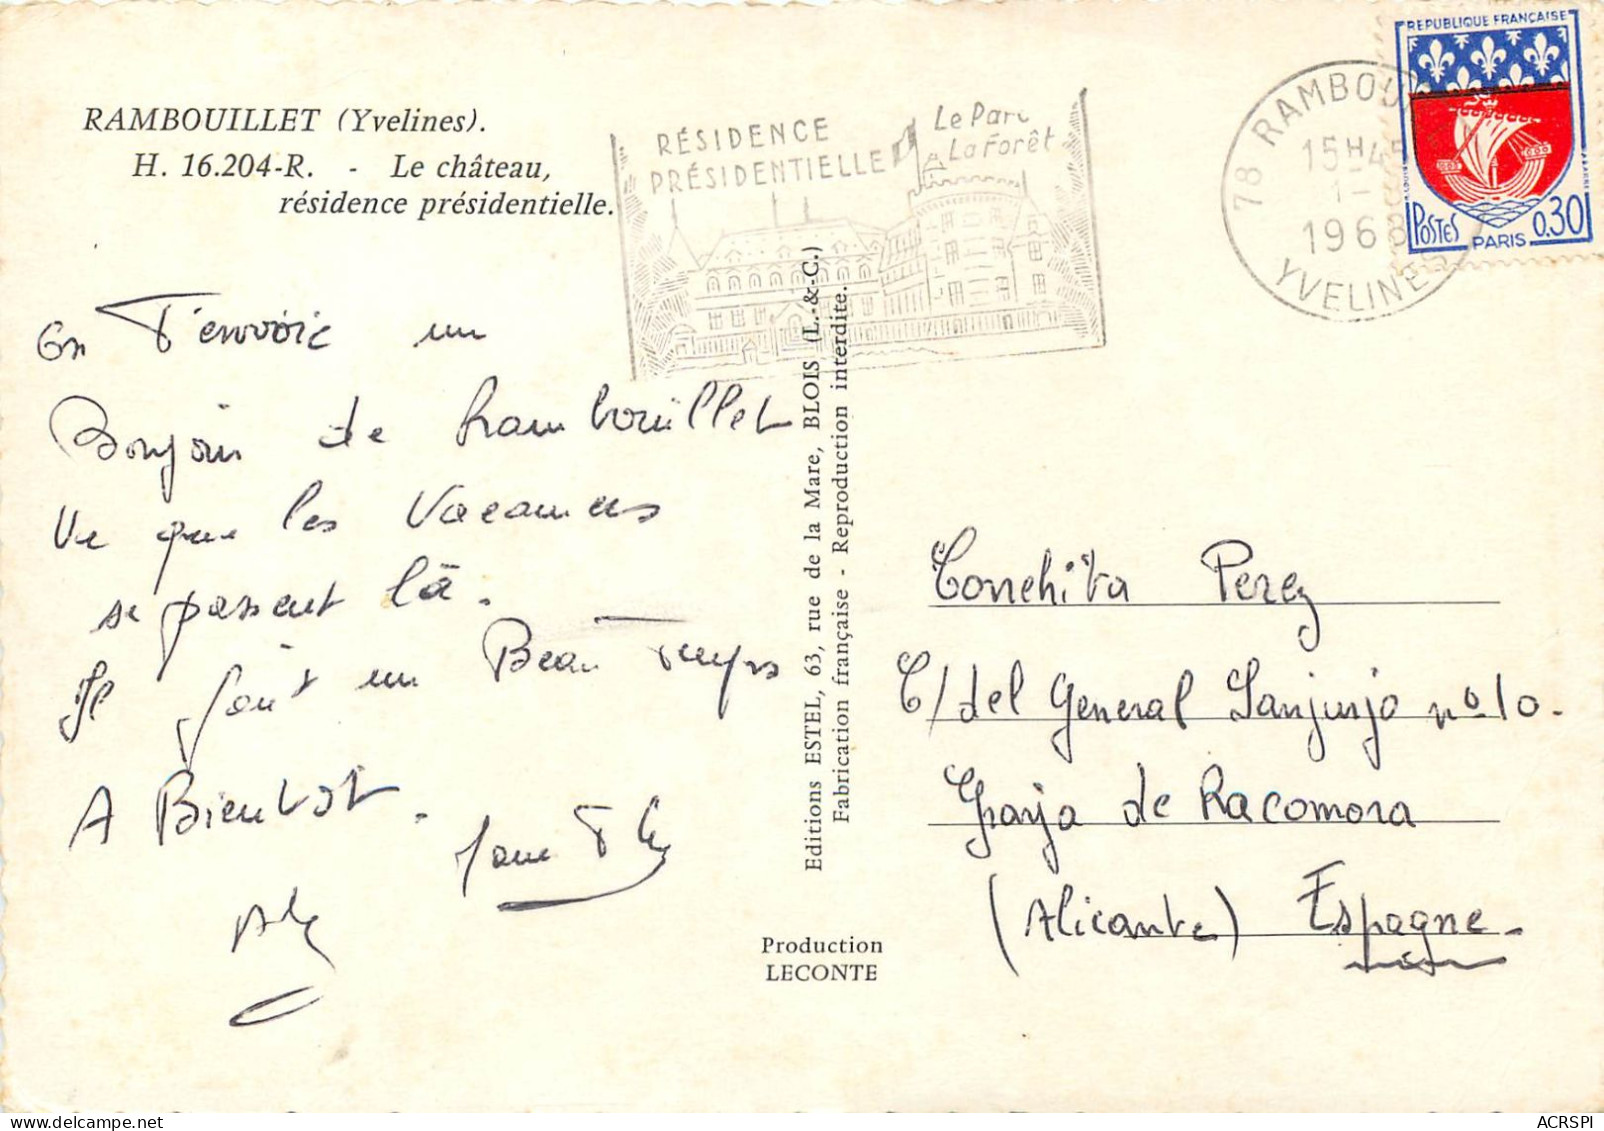 RAMBOUILLET (Yvelines).
H. 16.204-R. - Le château,
résidence présidentielle.
RÉSIDENCE
PRÉSIDENTIELLE
Le Parc
La Forêt
78 RAMBOU
15H45
1-
1968
YVELINES
REPUBLIQUE FRANÇAISE
POSTES
PARIS
0.30
On T'envoie un
Bonjour de Rambouillet
Vu que les Vacances
se passent là.
Il fait un Beau Temps
A Bientôt.
Editions ESTEL, 63, rue de la Mare, BLOIS (L.-&-C.)
Fabrication française - Reproduction interdite.
Production
LECONTE
Conchita Perez
C/ del General Sanjurjo nº 10.
Granja de Rocamora
(Alicante) Espagne.
ACRSPI